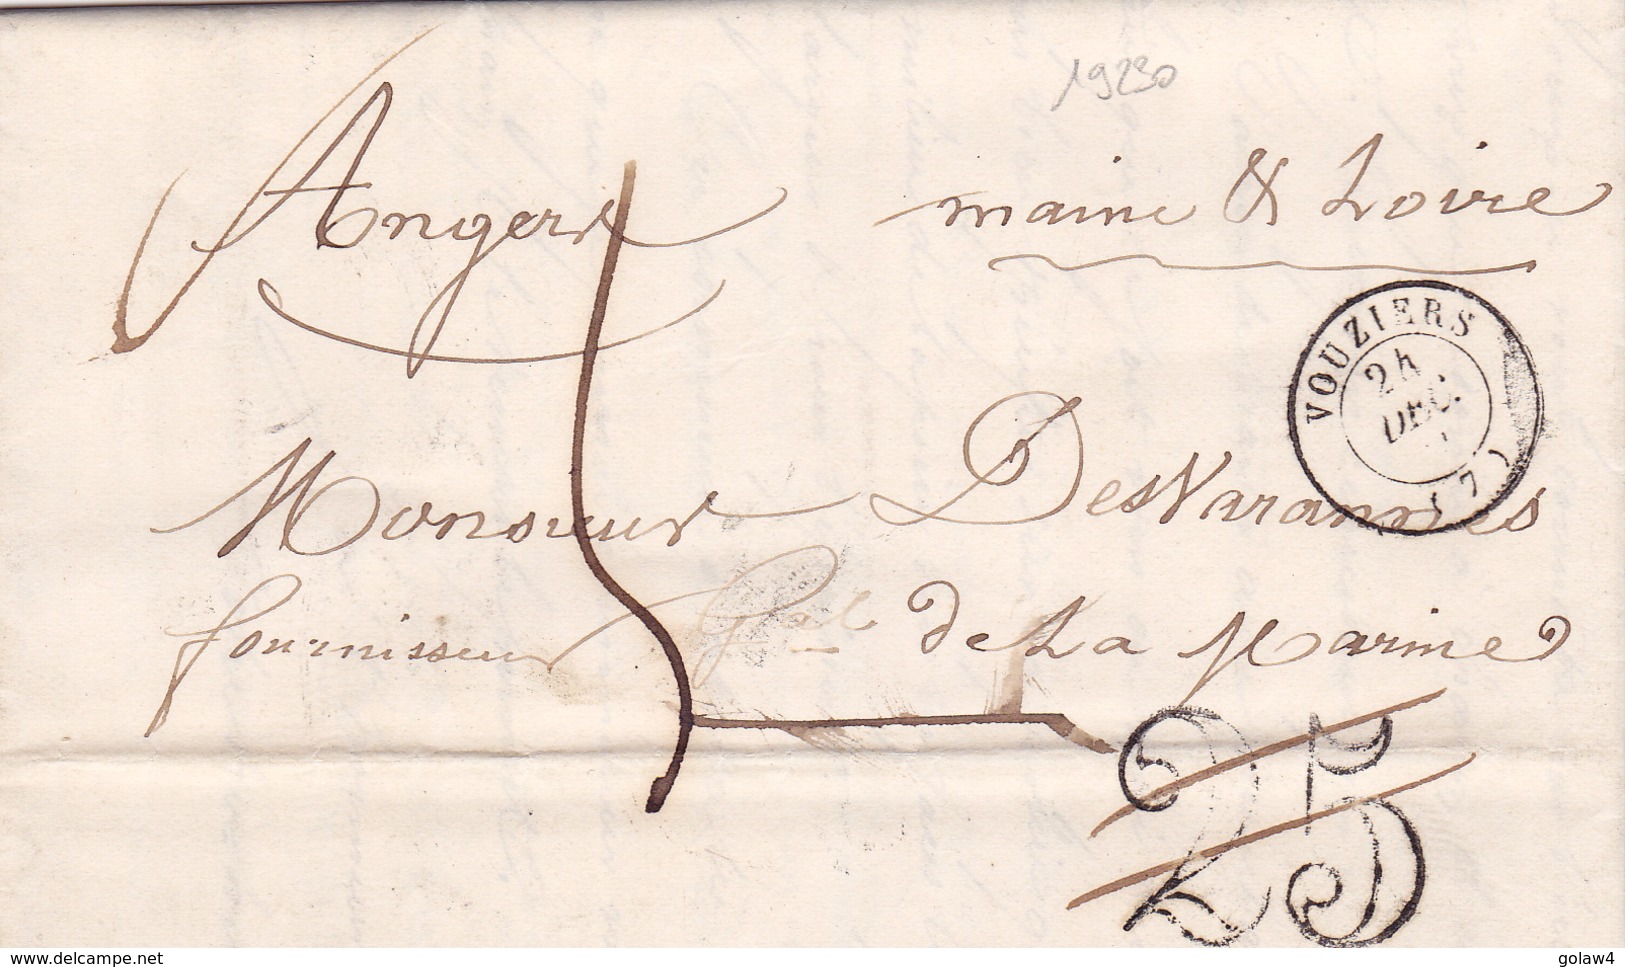 19230
Angers maine & Loire
VOUZIERS
24
DEC.
(7)
Monsieur DesVarannes
fournisseur Gal de La Marine
25
delcampe.net
golaw4